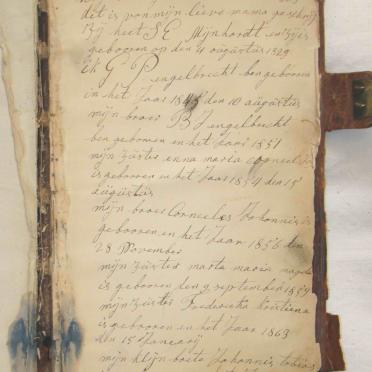 dit is von mijn lieve mama geschrijf
Zij heet S E Mijnhardt en zij is
gebooren op den 4 augustus 1829
ik G P Engelbrecht ben gebooren
in het Jaar 1848 den 10 augustus
mijn broer B J engelbrecht
ben gebooren en het Jaar 1851
mijn züster enna marta Corneelia
is gebooren en het Jaar 1854 den 15
augüstüs
mijn broer Corneeles Johannis is
gebooren en het Jaar 1856 den
28 November
mijn züster marta maria magda
is gebooren den 9 september 1859
mijn züster Frederieka kristiena
is gebooren en het Jaar 1863
den 15 Janearij
mijn klijn boete Johannis tobias